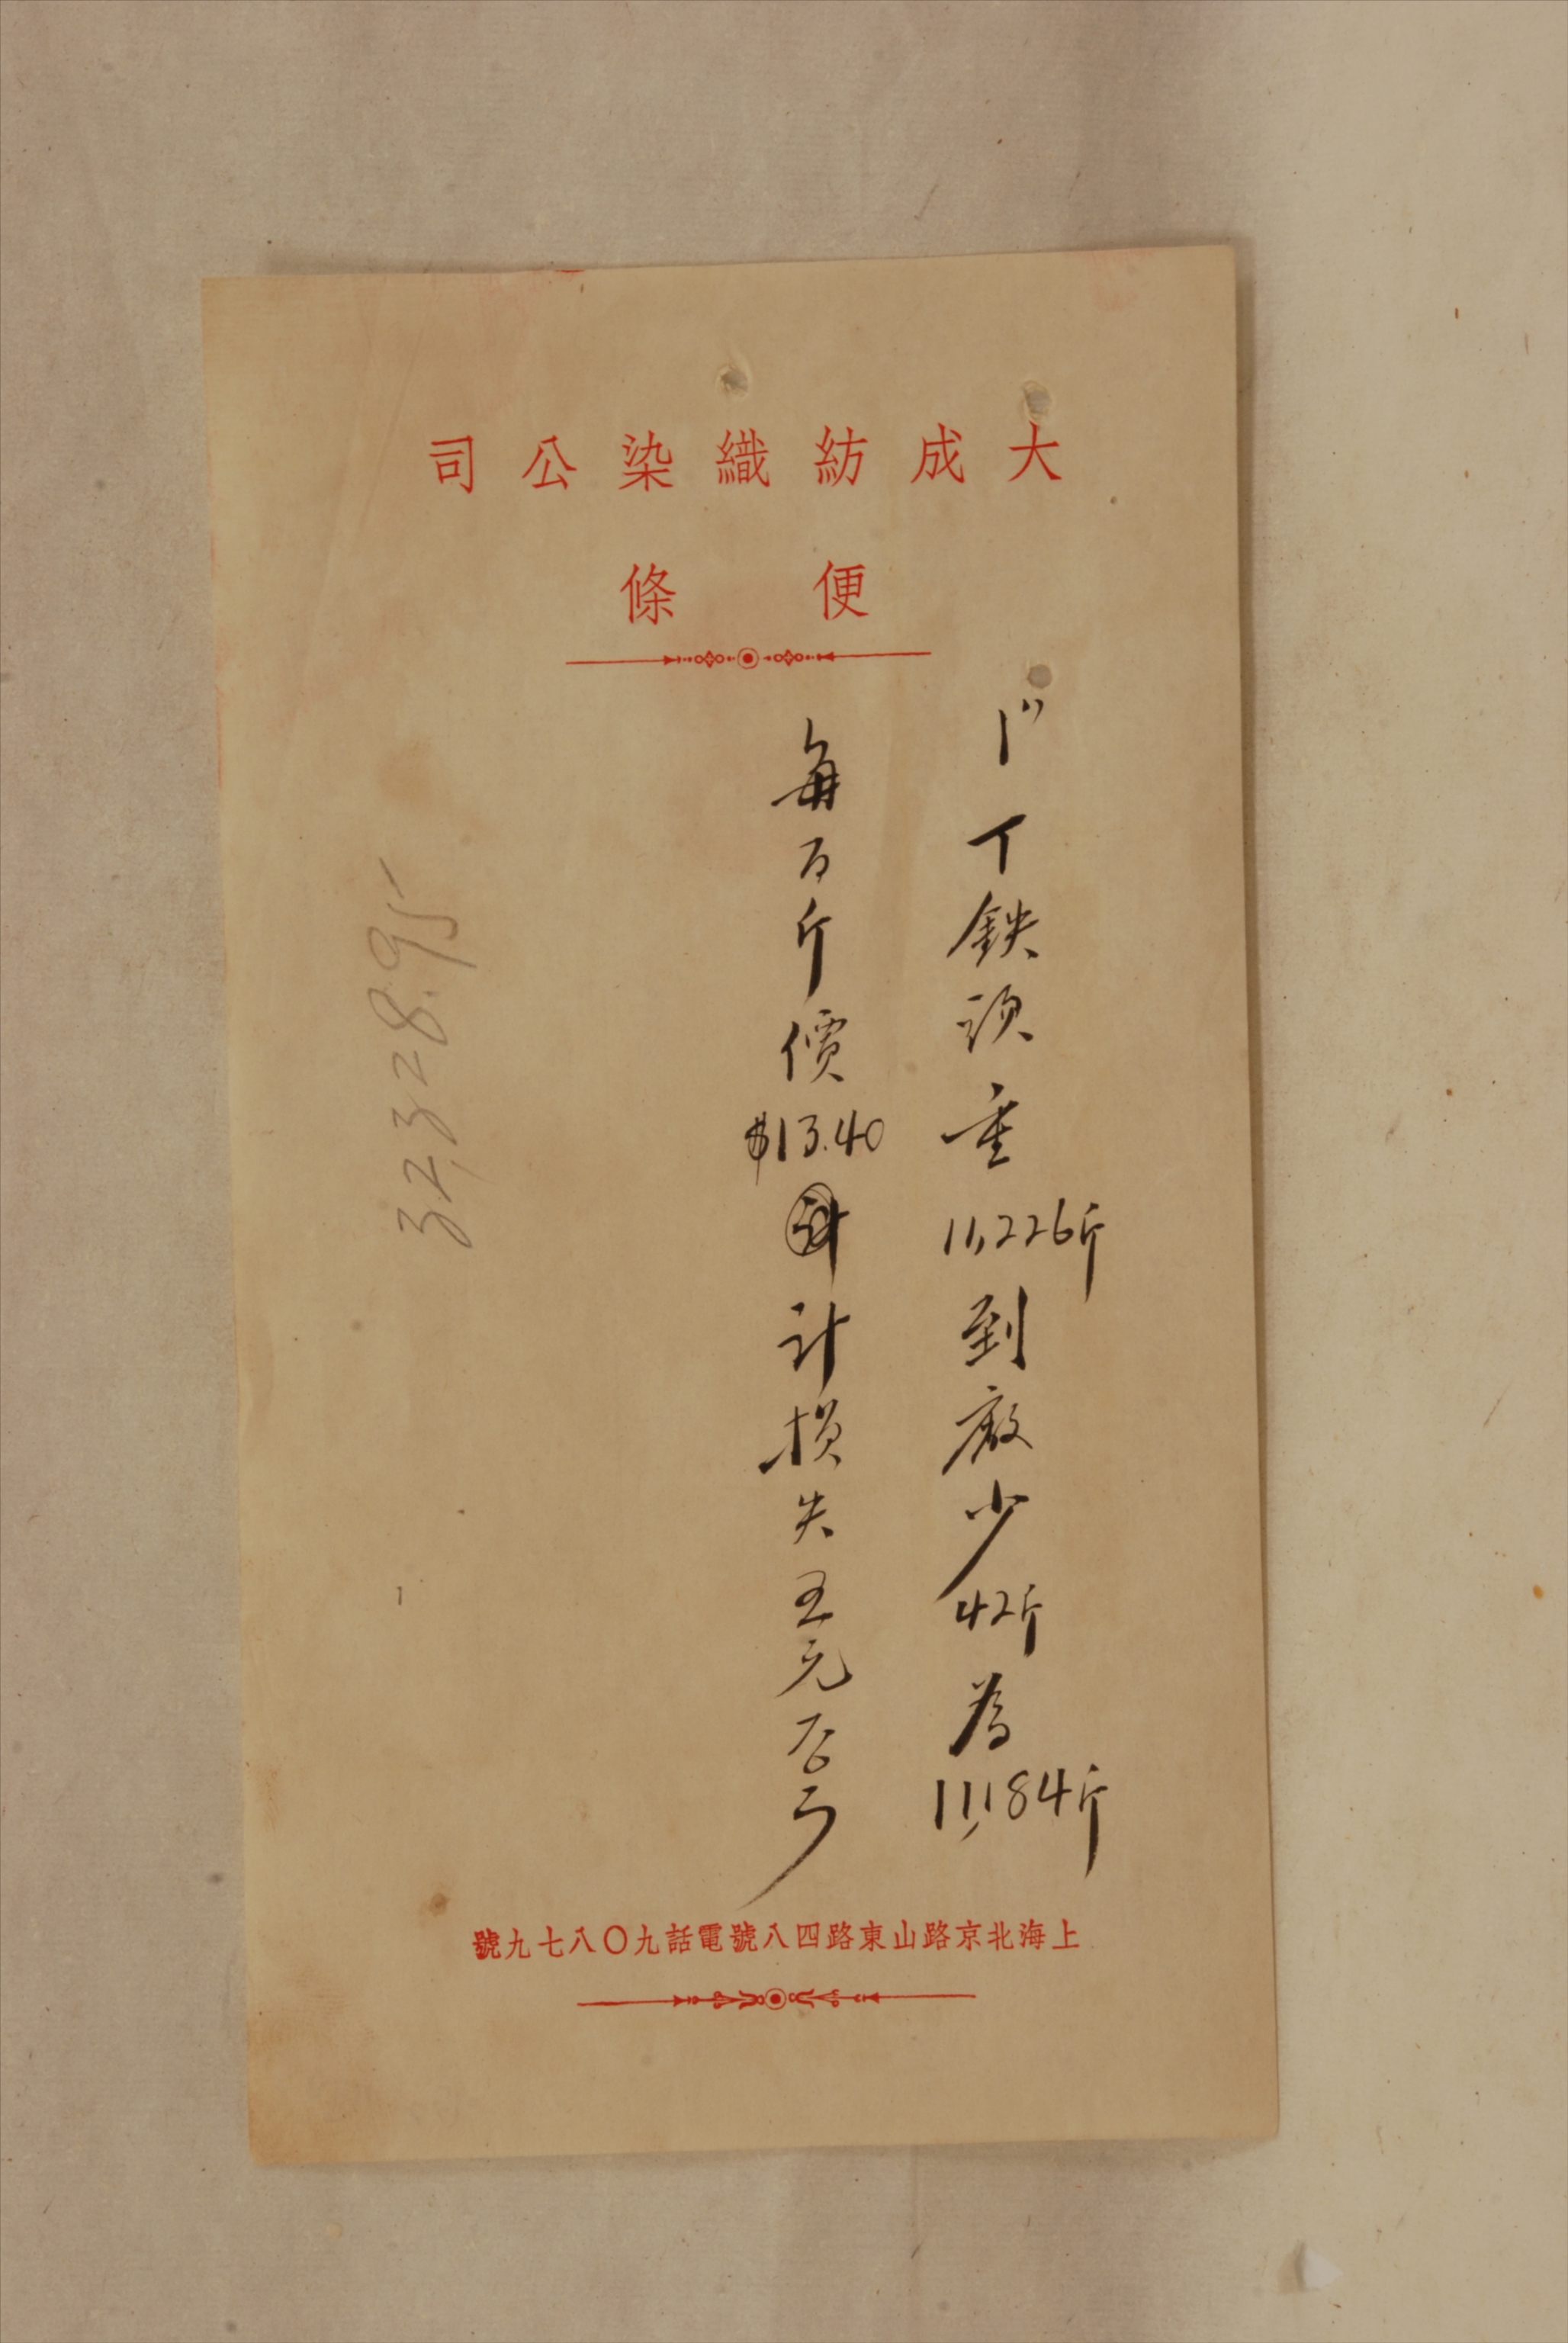 大成紡織染公司
便條
1" 丁鉄頭重11,226斤到廠少42斤為11,184斤
每百斤價$13.40計損失五元六〇
上海北京路山東路四八號電話九〇八七九號
32,328.95